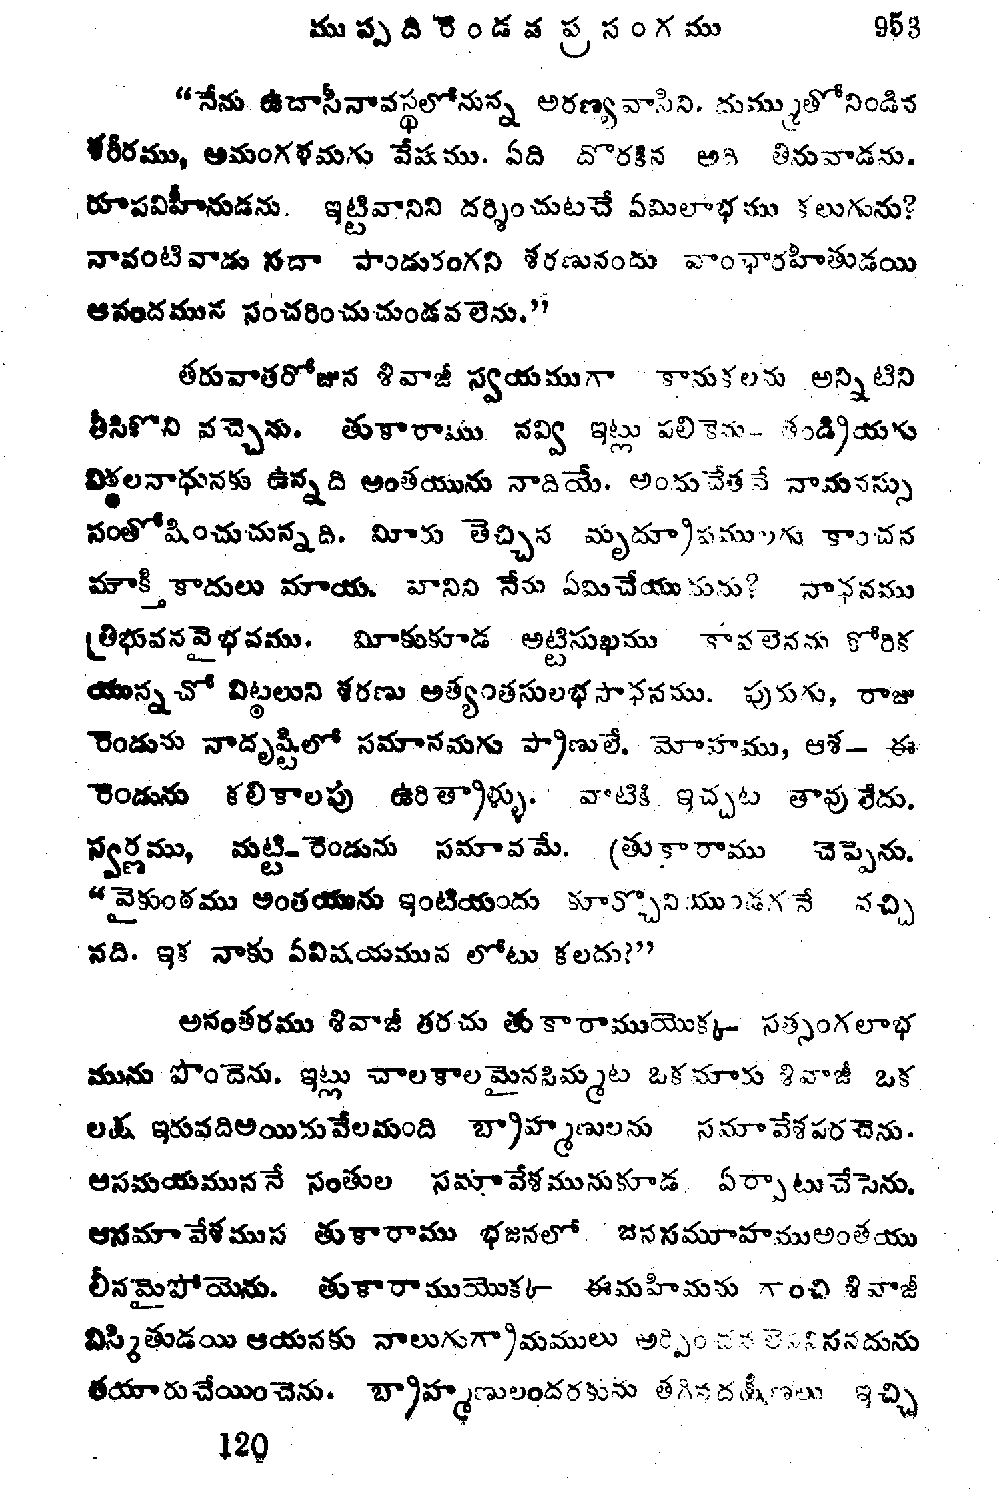 ముప్పదిరెండవ ప్రసంగము 953
“నేను ఉదాసీనావస్థలోనున్న అరణ్యవాసిని. దుమ్ముతోనిండిన
శరీరము, అమంగళమగు వేషము. ఏది దొరకిన అది తినువాడను.
రూపవిహీనుడను. ఇట్టివానిని దర్శించుటచే ఏమిలాభము కలుగును?
నావంటివాడు సదా పాండురంగని శరణునందు వాంఛారహితుడయి
ఆనందమున సంచరించుచుండవలెను.”
తరువాతరోజున శివాజీ స్వయముగా కానుకలను అన్నిటిని
తీసికొని వచ్చెను. తుకారాము నవ్వి ఇట్లు పలికెను– తండ్రియగు
విఠ్ఠలనాధునకు ఉన్నది అంతయును నాదియే. అందుచేతనే నామనస్సు
సంతోషించుచున్నది. మీరు తెచ్చిన మృద్రూపములగు కాంచన
మౌక్తికాదులు మాయ. వానిని నేను ఏమిచేయుదును? నాధనము
త్రిభువనవైభవము. మీకుకూడ అట్టిసుఖము కావలెనను కోరిక
యున్నచో విట్ఠలుని శరణు అత్యంతసులభసాధనము. పురుగు, రాజు
రెండును నాదృష్టిలో సమానమగు ప్రాణులే. మోహము, ఆశ– ఈ
రెండును కలికాలపు ఉరిత్రాళ్ళు. వాటికి ఇచ్చట తావులేదు.
స్వర్ణము, మట్టి–రెండును సమానమే. (తుకారాము చెప్పెను.
“వైకుంఠము అంతయును ఇంటియందు కూర్చొనియుండగనే వచ్చి
నది. ఇక నాకు ఏవిషయమున లోటు కలదు?”
అనంతరము శివాజీ తరచు తుకారాముయొక్క సత్సంగలాభ
మును పొందెను. ఇట్లు చాలకాలమైనపిమ్మట ఒకమారు శివాజీ ఒక
లక్ష ఇరువదిఅయిదువేలమంది బ్రాహ్మణులను సమావేశపరచెను.
ఆసమయముననే సంతుల సమావేశమునుకూడ ఏర్పాటుచేసెను.
ఆసమావేశమున తుకారాము భజనలో జనసమూహముఅంతయు
లీనమైపోయెను. తుకారాముయొక్క ఈమహిమను గాంచి శివాజీ
విస్మితుడయి ఆయనకు నాలుగుగ్రామములు అర్పించవలెనని సనదును
తయారుచేయించెను. బ్రాహ్మణులందరకును తగినదక్షిణలు ఇచ్చి
120